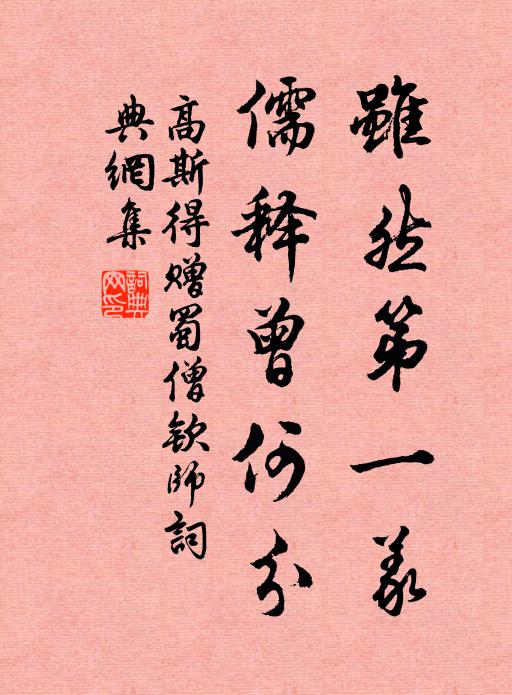 雖然第一義
儒释曾何分
高斯得赠蜀僧欽師詞
典網集
詞典網印